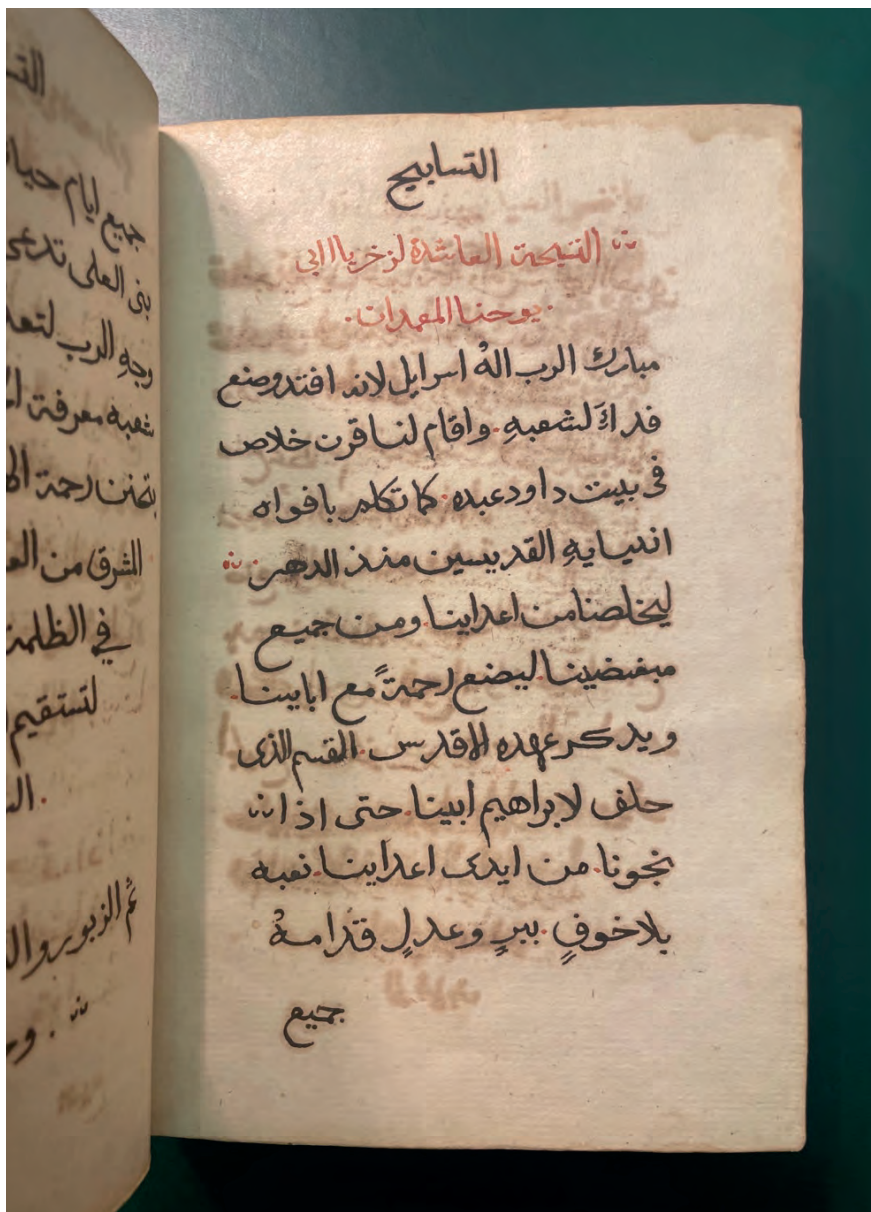 التسابيح
التسبحة العاشرة لزخريا ابى
يوحنا المعمدان
مبارك الرب اله اسرايل لانه افتقد وصنع
فداءً لشعبهِ. واقام لنا قرن خلاص
فى بيت داود عبده. كما تكلم بافواه
انبيايهِ القديسين منذ الدهر.
ليخلصنا من اعداينا ومن جميع
مبغضينا. ليصنع رحمةً مع ابايينا.
ويدكر عهده الاقدس. القسم الذى
حلف لابراهيم ابينا. حتى اذا
نجونا. من ايدى اعداينا. نعبه
بلا خوفٍ. ببرٍ وعدلٍ قدامهُ
جميع
جميع ايام
بنى العلى تدعى
وجهِ الرب
شعبه معرفة
بتحنن رحمة
المشرق من
فى الظلمة
لتستقيم
ثم الزبور